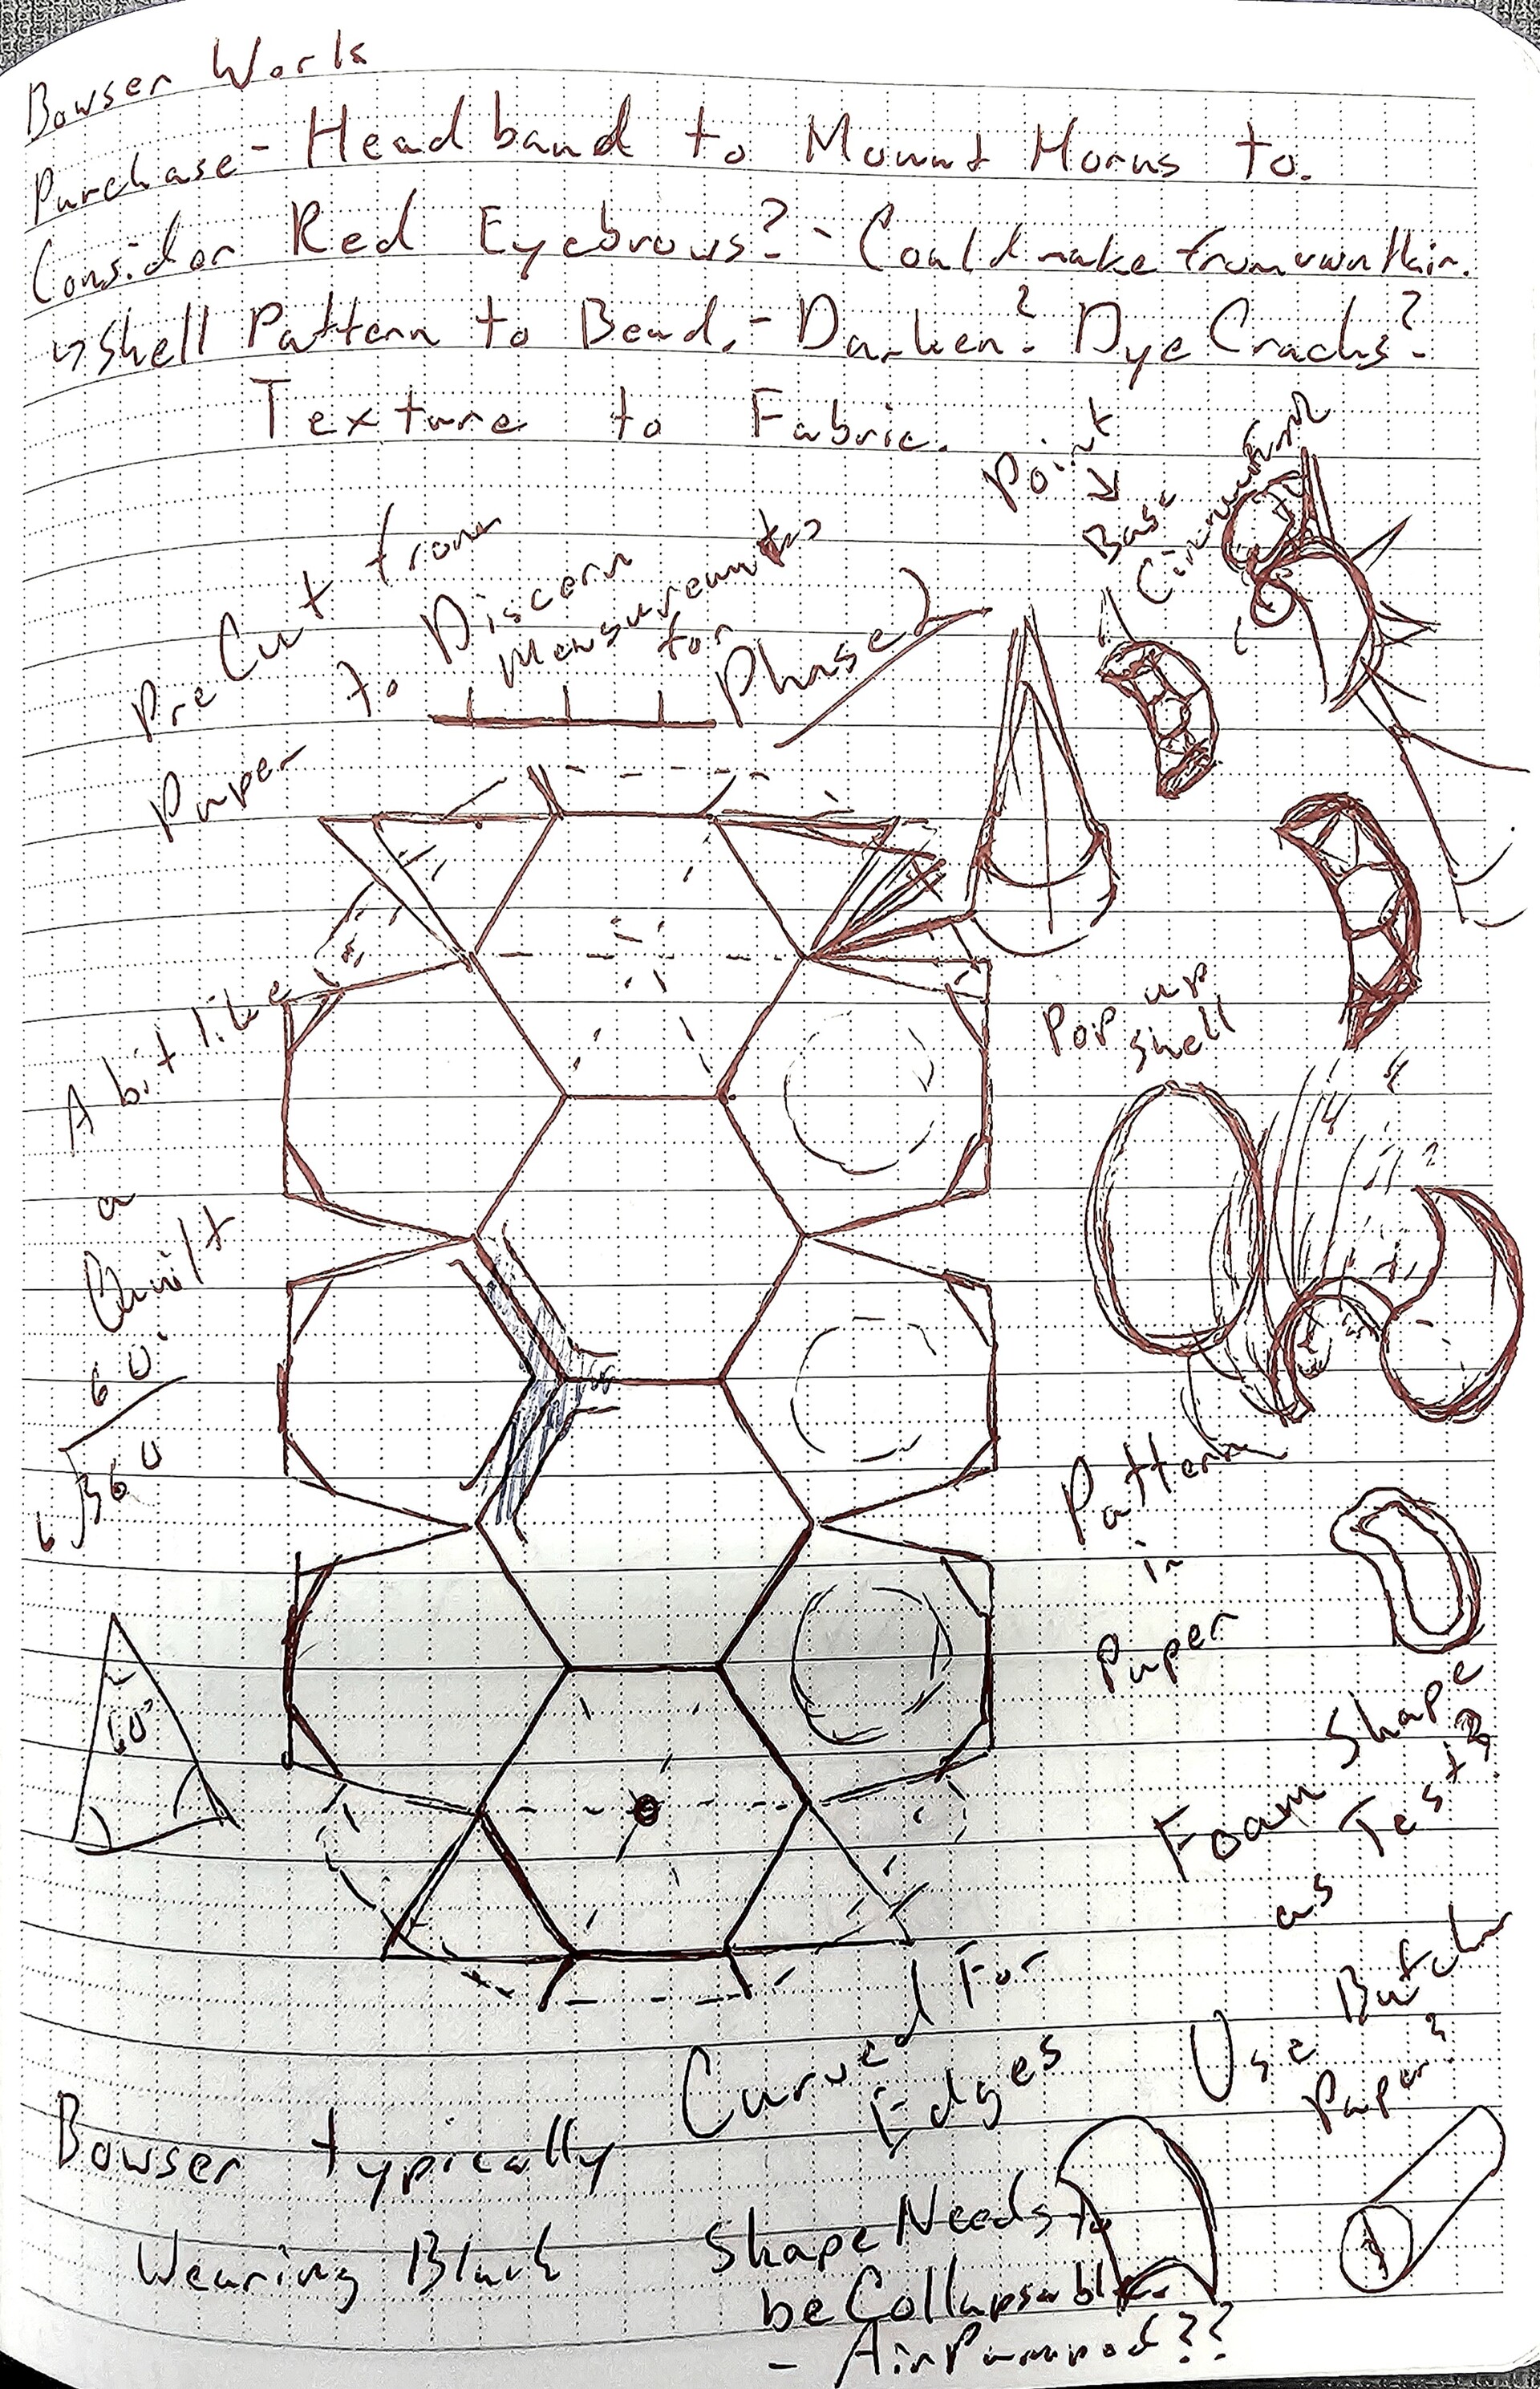 Bowser Work
Purchase - Headband to Mount Horns to.
Consider Red Eyebrows? - Could make from own Hair.
↳ Shell Pattern to Bead. - Darken? Dye Cracks?
Texture to Fabric.
Point
↓
Base
Circumference
Pre Cut from
Paper
to Discern
Measurements
for
Phase 2
A bit like
a
Quilt
60
6 360
60°
Pop up
shell
Pattern
in
Paper
Foam Shape
as Test?
Use Butcher
Paper?
Curved For
Edges
Bowser typically
Wearing Black
Shape Needs to
be Collapsable
- Air Pumped??